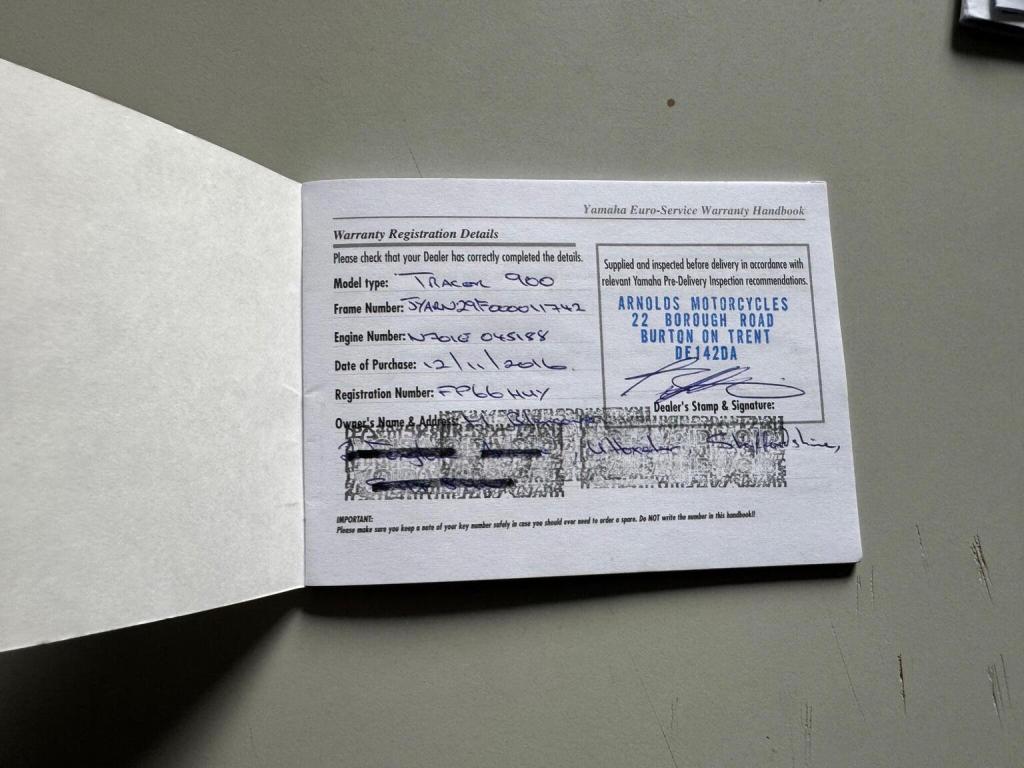 Yamaha Euro-Service Warranty Handbook
Warranty Registration Details
Please check that your Dealer has correctly completed the details.
Model type: TRACER 900
Frame Number: JYARN29F000011742
Engine Number: N701E 045188
Date of Purchase: 12/11/2016.
Registration Number: FP66 HUY
Owner's Name & Address:
Uttoxeter, Staffordshire,
Supplied and inspected before delivery in accordance with
relevant Yamaha Pre-Delivery Inspection recommendations.
ARNOLDS MOTORCYCLES
22 BOROUGH ROAD
BURTON ON TRENT
DE142DA
Dealer's Stamp & Signature:
IMPORTANT:
Please make sure you keep a note of your key number safely in case you should ever need to order a spare. Do NOT write the number in this handbook!!